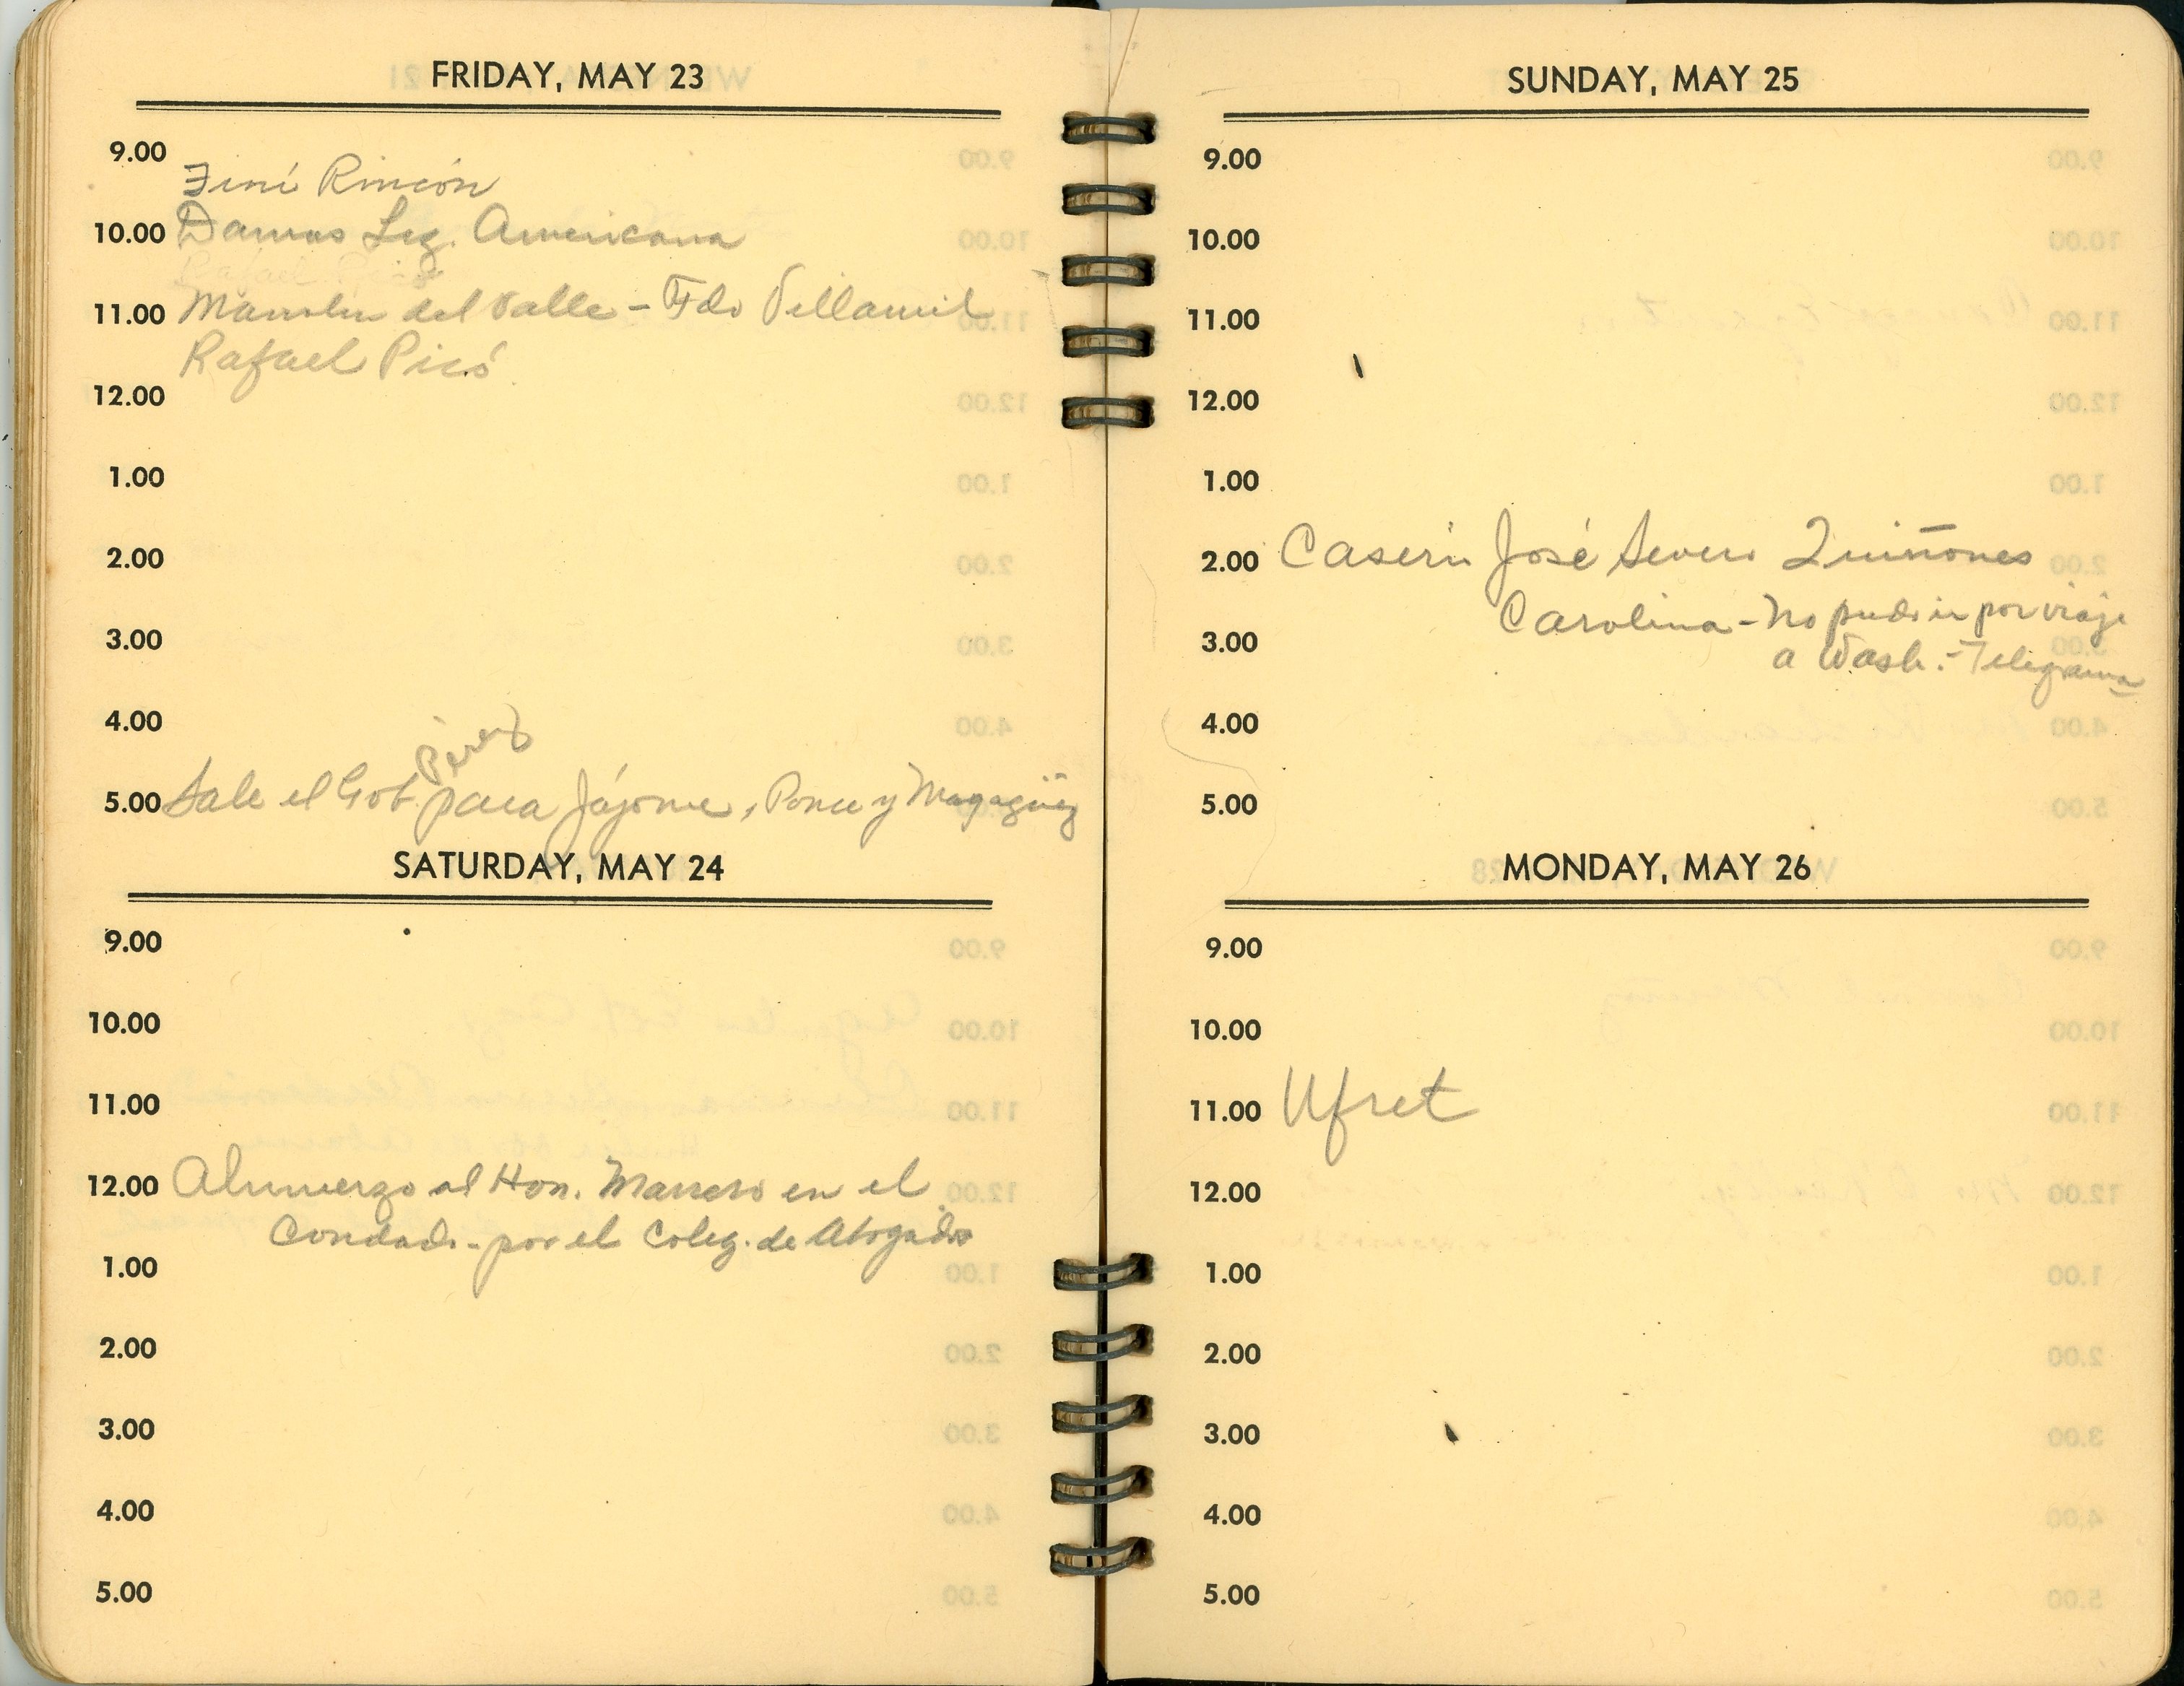 FRIDAY, MAY 23
9.00
Finí Rincón
10.00 Damas Leg. Americana
11.00 Manolín del Valle – Fdo Villamil
Rafael Picó
12.00
1.00
2.00
3.00
4.00
Pérez
5.00 Sale el Gob. para Jájome, Ponce y Mayagüez
SATURDAY, MAY 24
9.00
10.00
11.00
12.00 Almuerzo al Hon. Marrero en el
Condado - por el Coleg. de Abogados
1.00
2.00
3.00
4.00
5.00
SUNDAY, MAY 25
9.00
10.00
11.00
12.00
1.00
2.00 Caserío José Severo Quiñones
Carolina - No pudo ir por viaje
3.00
a Wash. - Telegrama
4.00
5.00
MONDAY, MAY 26
9.00
10.00
11.00 Ufret
12.00
1.00
2.00
3.00
4.00
5.00